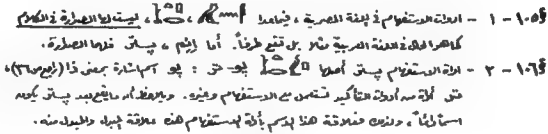 §١٠٥ - ١ - أدوات الاستفهام في اللغة المصرية، فيما عدا ، ، ليست لها الصدارة في الكلام
كما هو الحال في اللغة العربية مثلا بل تقع طرفاً. أما إثم، يسبق لها الصدارة.
§١٠٦ - ٢ - أداة الاستفهام يسبق أصلها يو - حق : يو اسم إشارة بمعنى ذا (راجع ص٣٦)،
حق أداة من أدوات التأكيد تستعمل مع الاستفهام وغيره. ويلاحظ أن ما يقع بعد يسبق يكون
اسماً دائماً، ولذلك فعلاقة هذا الاسم بأداة الاستفهام هذه علاقة البدل والمبدل منه.